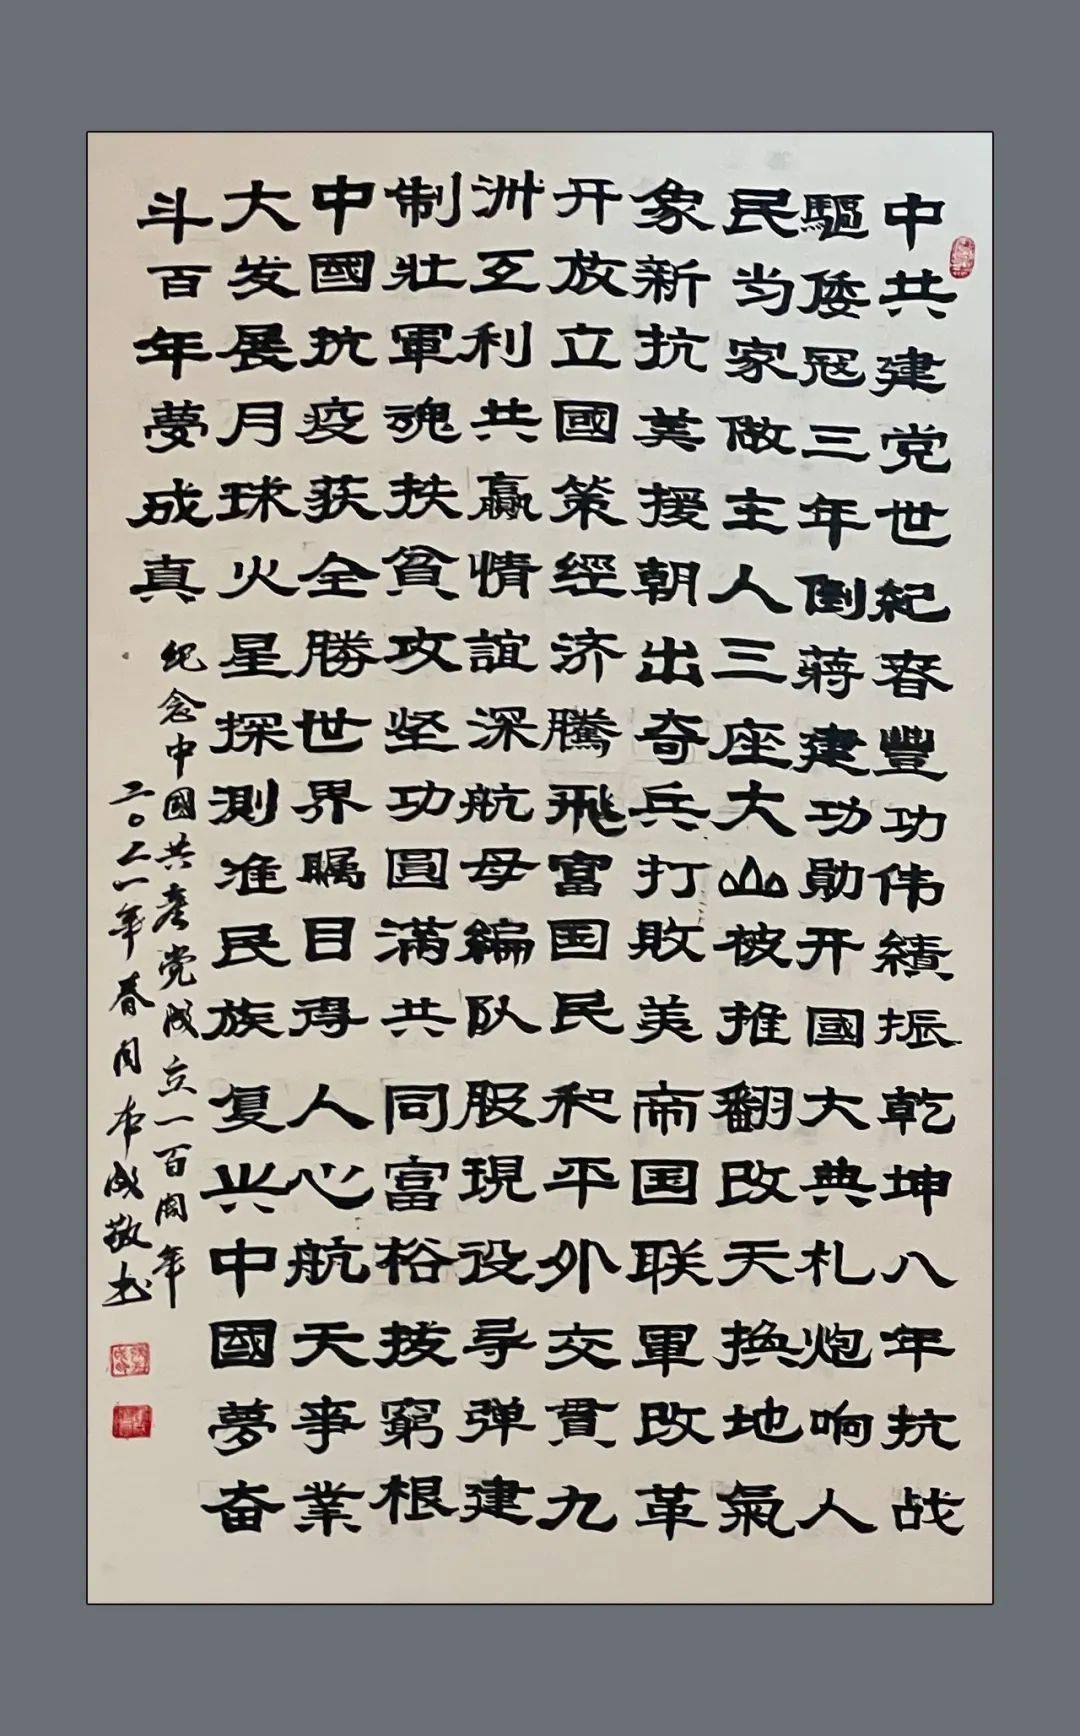 中共建党世紀春豐功伟績振乾坤八年抗战
驅倭冦三年倒蔣建功勋开國大典礼炮响人
民当家做主人三座大山被推翻改天换地氣
象新抗美援朝出奇兵打敗美帝国联軍改革
开放立國策經济騰飛富国民和平外交貫九
洲互利共赢情誼深航母編队服現役导弹建
制壮軍魂扶貧攻坚功圓满共同富裕拔窮根
中國抗疫获全勝世界瞩目得人心航天事業
大发展月球火星探測准民族复兴中國夢奋
斗百年夢成真
纪念中國共產党成立一百周年
二〇二一年春月布成敬书